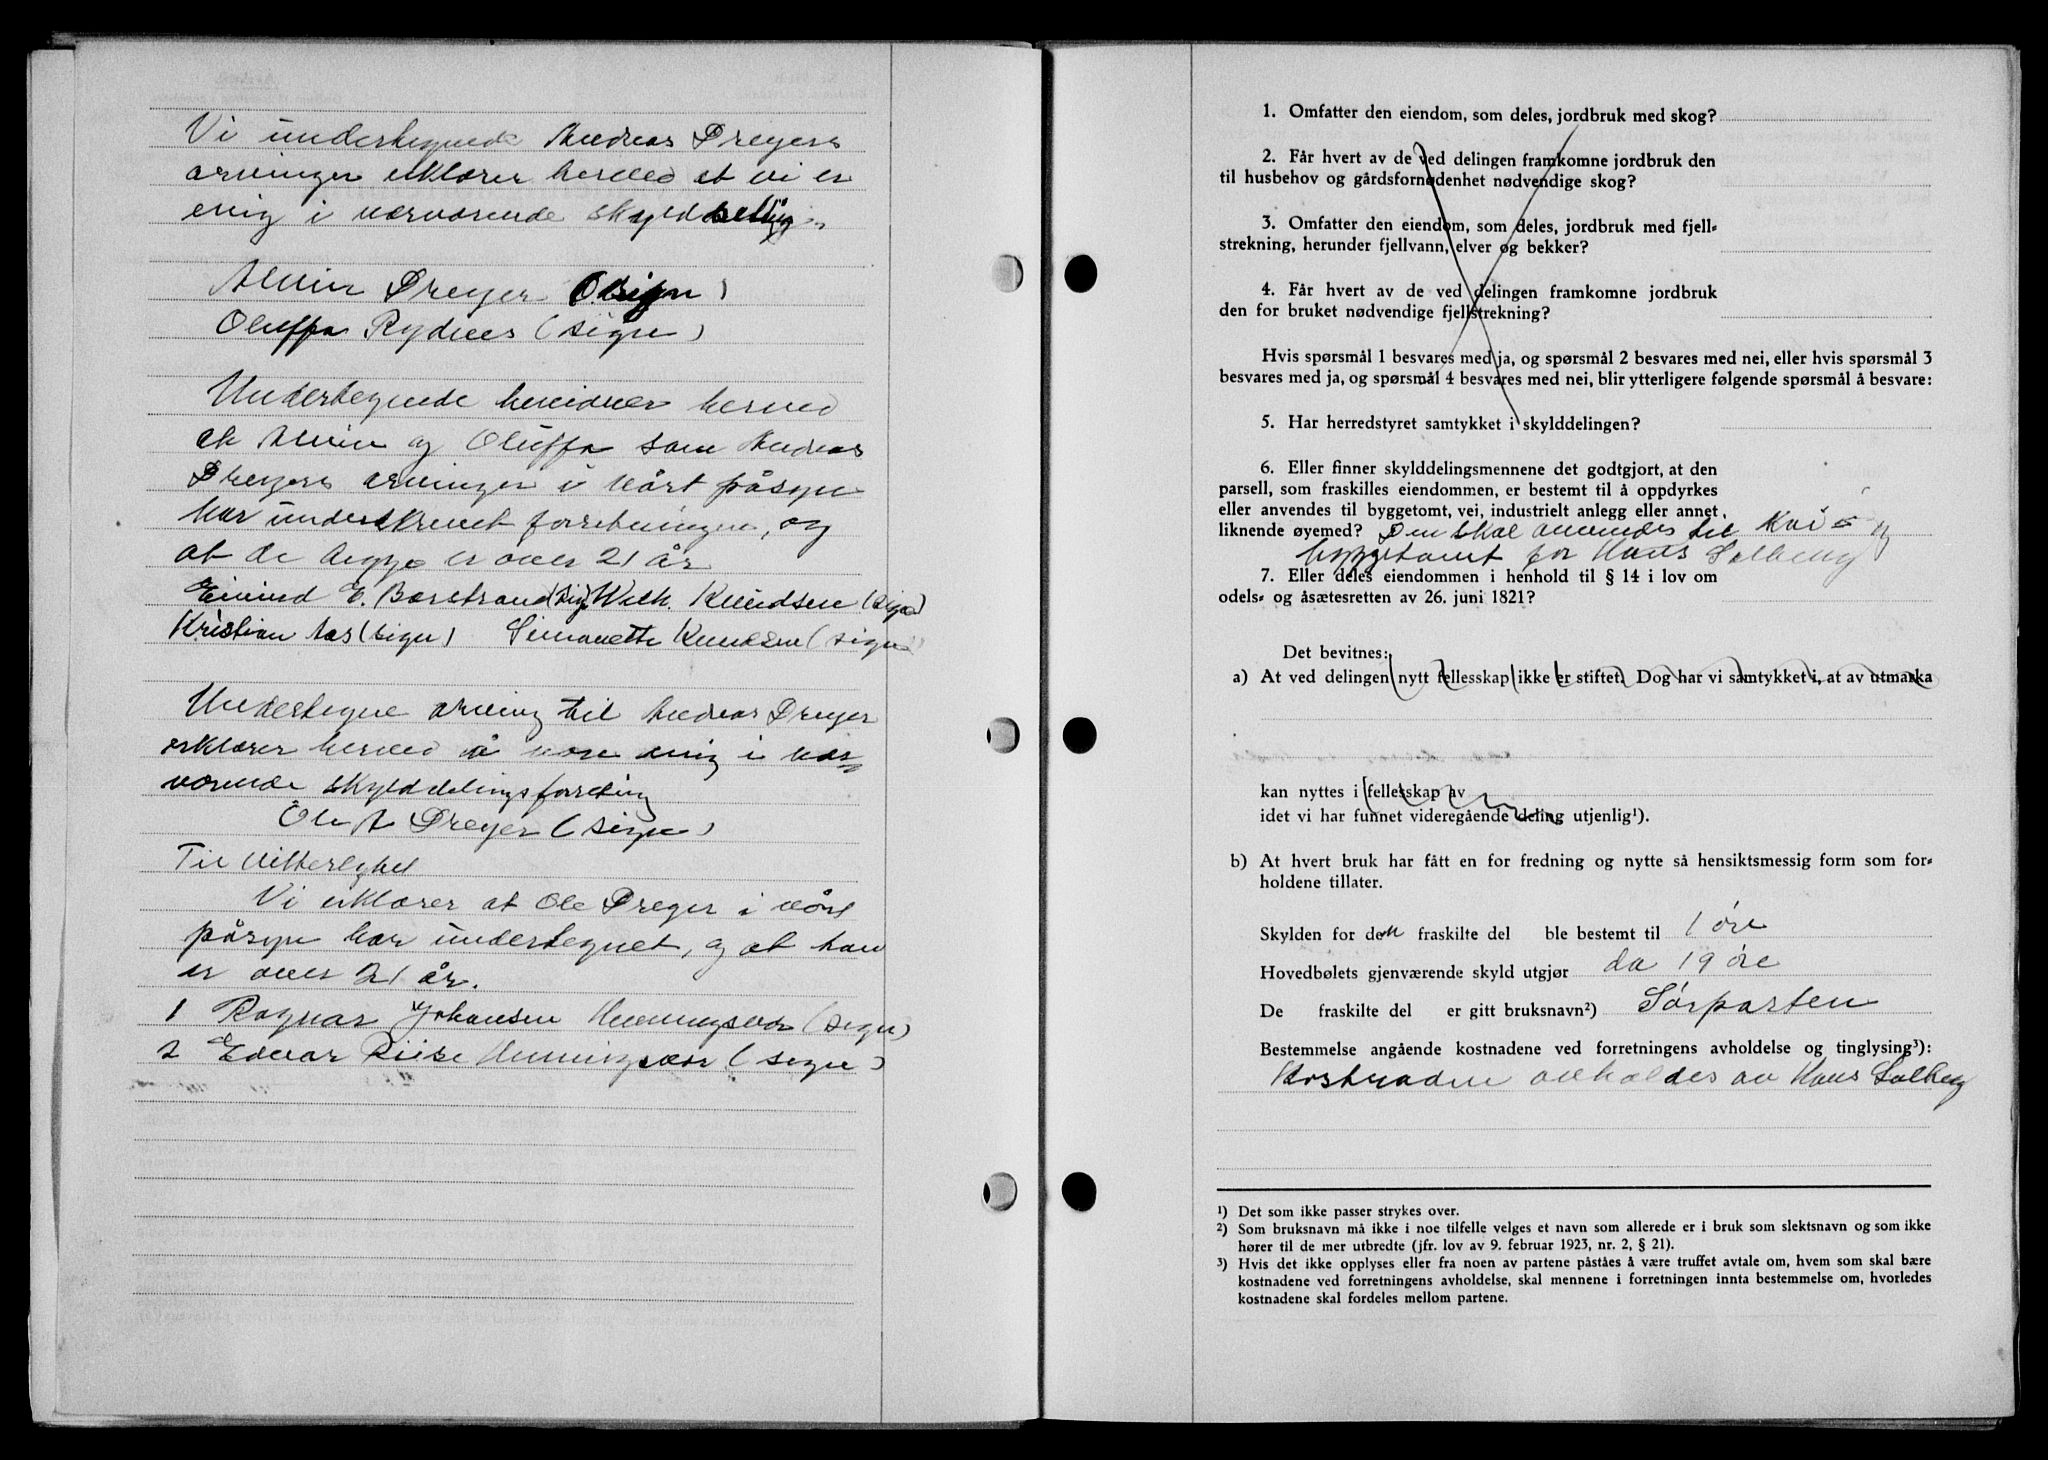 Vi undertegnede Andreas Dreyers
arvinger erklærer herved at vi er
enig i nærværende skylddeling.
Alvin Dreyer (sign)
Oluffa Rydnes (sign)
Undertegnede bevidner herved
at Alvin og Oluffa som Andreas
Dreyers arvinger i vårt påsyn
har underskrevet forretningen, og
at de begge er over 21 år
Eivind E. Borstrand (sign) Wilh. Knudsen (sign)
Kristian Aas (sign) Simonette Knudsen (sign)
Undertegne arving til Andreas Dreyer
erklærer herved å være enig i nær
værende skylddelingsforretning
Ole A Dreyer (sign)
Til Vitterlighet
Vi erklærer at Ole Dreyer i vårt
påsyn har undertegnet, og at han
er over 21 år.
1 Ragnar Johansen Henningsvær (sign)
2 Edvar Riise Henningsvær (sign)
1. Omfatter den eiendom, som deles, jordbruk med skog?
2. Får hvert av de ved delingen framkomne jordbruk den
til husbehov og gårdsfornødenhet nødvendige skog?
3. Omfatter den eiendom, som deles, jordbruk med fjell-
strekning, herunder fjellvann, elver og bekker?
4. Får hvert av de ved delingen framkomne jordbruk
den for bruket nødvendige fjellstrekning?
Hvis spørsmål 1 besvares med ja, og spørsmål 2 besvares med nei, eller hvis spørsmål 3
besvares med ja, og spørsmål 4 besvares med nei, blir ytterligere følgende spørsmål å besvare:
5. Har herredstyret samtykket i skylddelingen?
6. Eller finner skylddelingsmennene det godtgjort, at den
parsell, som fraskilles eiendommen, er bestemt til å oppdyrkes
eller anvendes til byggetomt, vei, industrielt anlegg eller annet
liknende øyemed? Den skal anvendes til kai- og
byggetomt for Hans Solberg
7. Eller deles eiendommen i henhold til § 14 i lov om
odels- og åsætesretten av 26. juni 1821?
Det bevitnes:
a) At ved delingen nytt fellesskap ikke er stiftet. Dog har vi samtykket i, at av utmarka
kan nyttes i fellesskap av
idet vi har funnet videregående deling utjenlig¹).
b) At hvert bruk har fått en for fredning og nytte så hensiktsmessig form som for-
holdene tillater.
Skylden for den fraskilte del ble bestemt til 1 øre
Hovedbølets gjenværende skyld utgjør da 19 øre
De fraskilte del er gitt bruksnavn²) Sørparten
Bestemmelse angående kostnadene ved forretningens avholdelse og tinglysing³):
Kostnadene avholdes av Hans Solberg
¹) Det som ikke passer strykes over.
²) Som bruksnavn må ikke i noe tilfelle velges et navn som allerede er i bruk som slektsnavn og som ikke
hører til de mer utbredte (jfr. lov av 9. februar 1923, nr. 2, § 21).
³) Hvis det ikke opplyses eller fra noen av partene påståes å være truffet avtale om, hvem som skal bære
kostnadene ved forretningens avholdelse, skal mennene i forretningen innta bestemmelse om, hvorledes
kostnadene skal fordeles mellom partene.